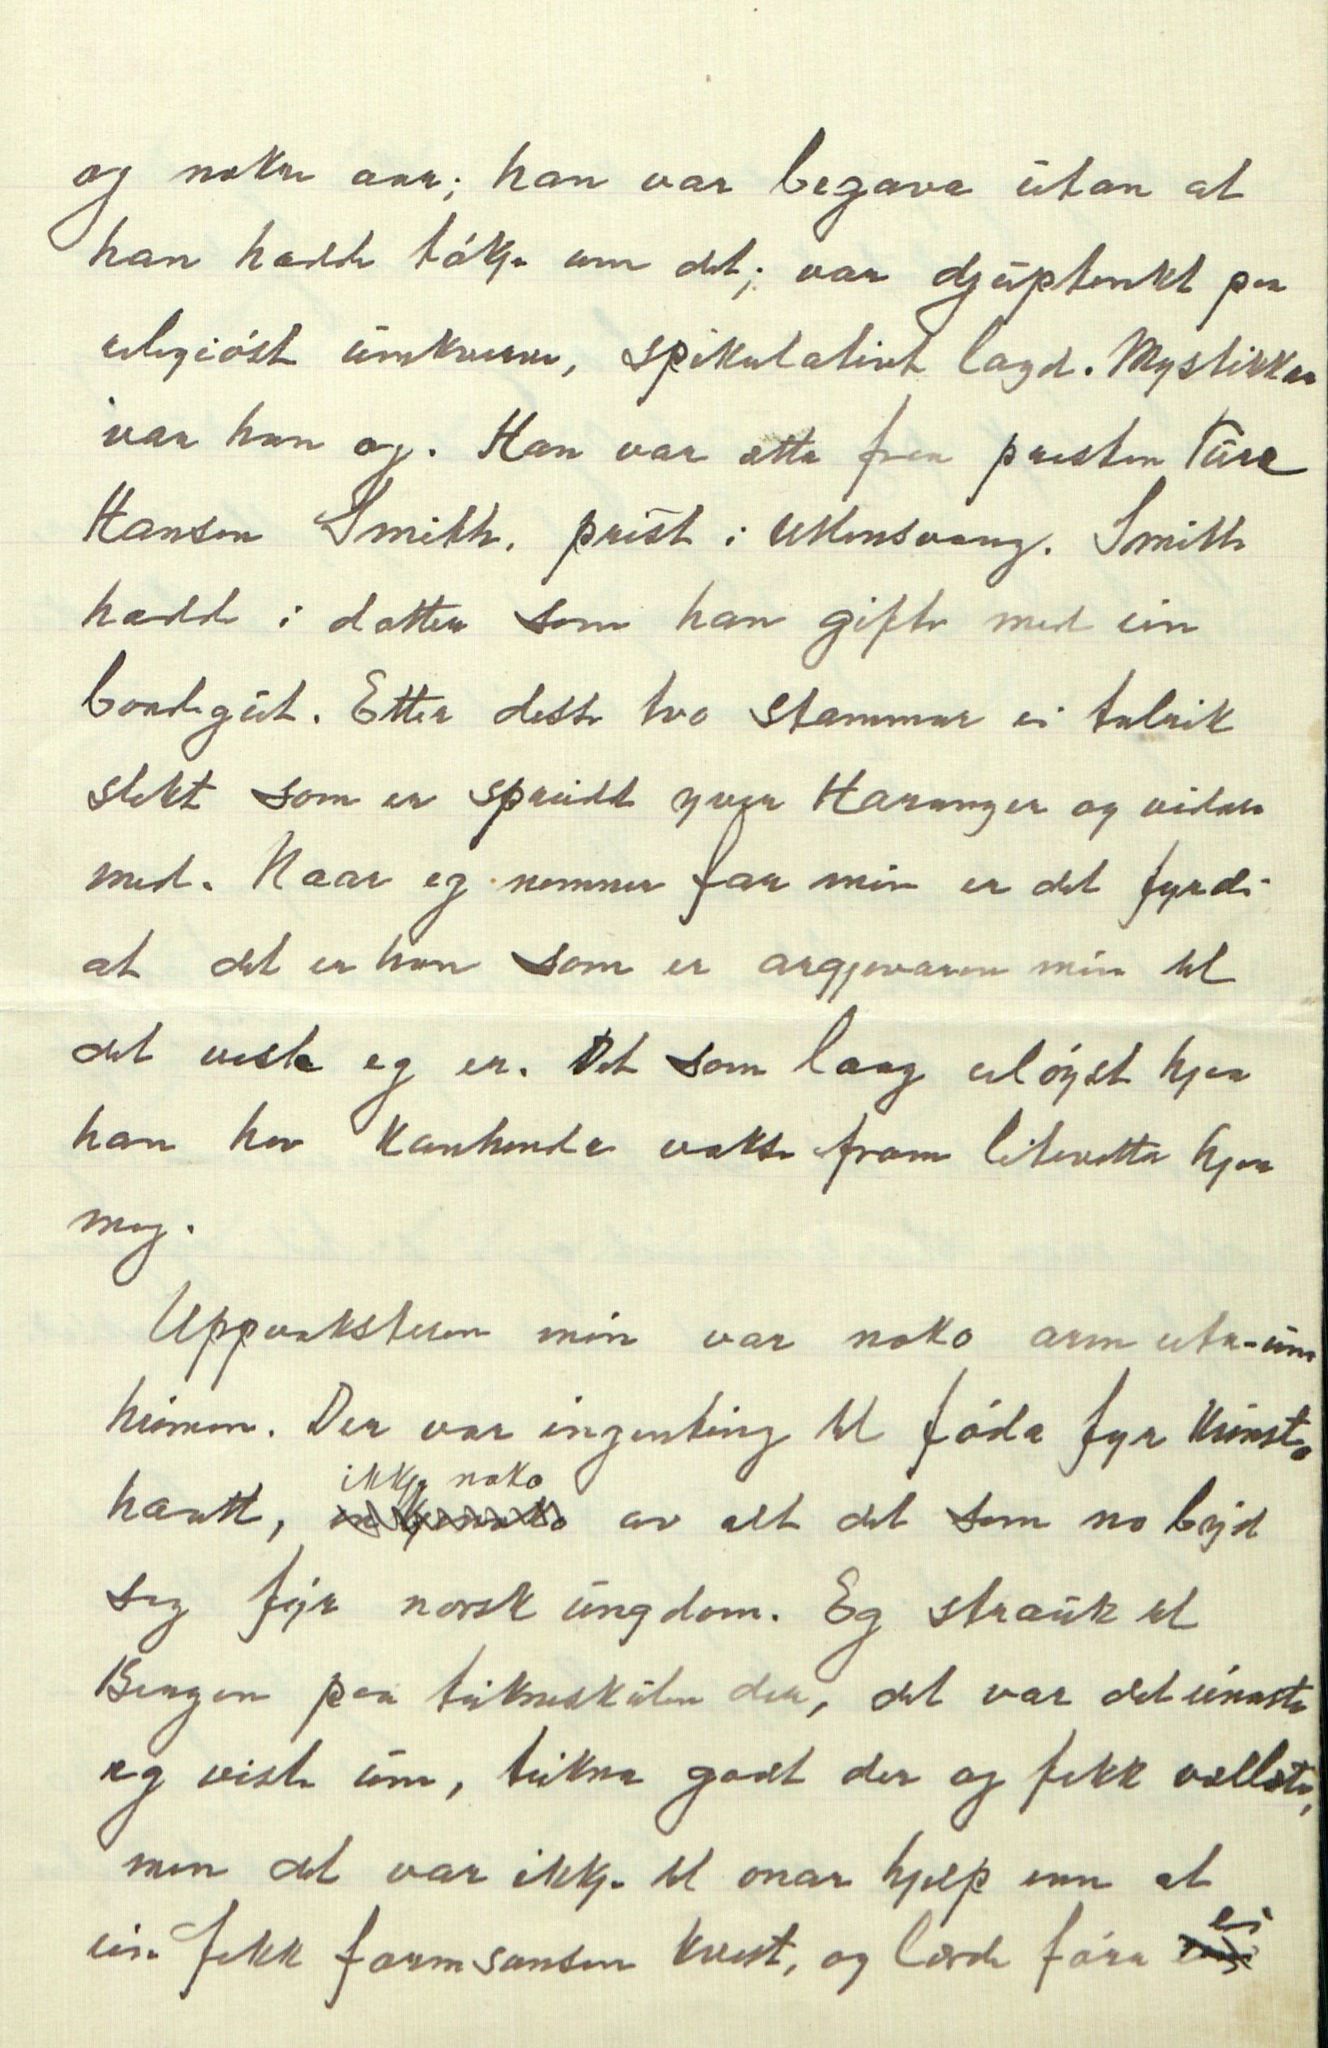 og nokre aar; han var begava utan at
han hadde tókje um det; var djuptenkt paa
religióst umkverve, spikulativt lagd. Mystikkar
var han og. Han var ætta fraa presten Ture
Hansen Smith, prest i Ullensvang. Smith
hadde i dotter som han gifte med ein
bondegut. Etter desse tvo stammar ei talrik
slekt som er spreidd yver Haranger og vidare
med. Naar eg nemner far min er det fyrdi
at det er han som er argjevaren min til
det vesle eg er. Det som laag uløyst hjaa
han hev kanhende vakse fram litevetta hjaa
meg.
Uppvaksteren min var noko arm ute-um
heimen. Der var ingenting til føda fyr kunst-
haatt, ikkje noko av alt det som no byd
seg fyr norsk ungdom. Eg strauk til
Bergen paa teikneskulen der, det var det einaste
eg viste um, teikna godt der og fekk vellæte,
men det var ikkje til onar hjelp enn at
ein fekk formsansen kvest, og lærde føra ei